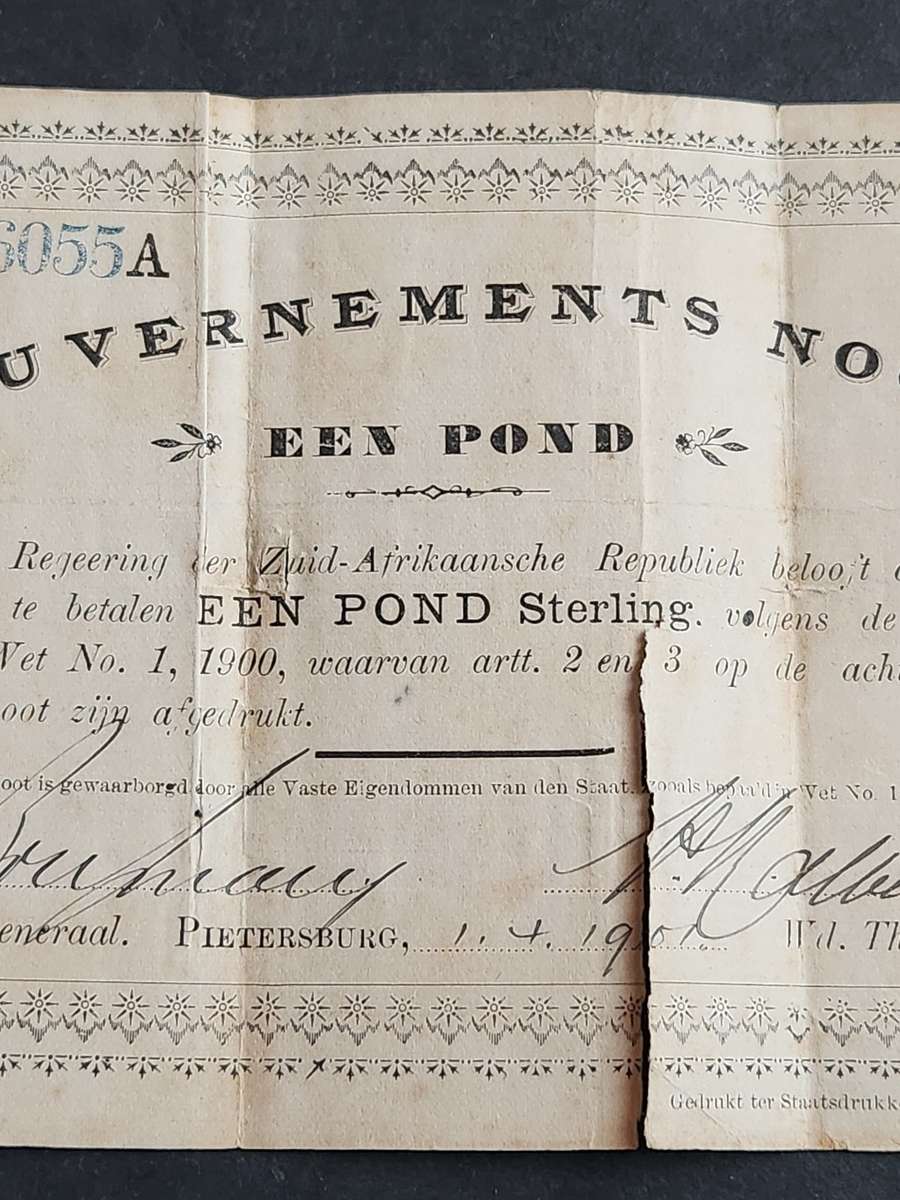 6055 A
UVERNEMENTS NO
EEN POND
Regeering der Zuid-Afrikaansche Republiek belooft
te betalen EEN POND Sterling. volgens de
Wet No. 1, 1900, waarvan artt. 2 en 3 op de ach
oot zijn afgedrukt.
oot is gewaarborgd door alle Vaste Eigendommen van den Staat, zooals bepaald in Wet No. 1
eneraal. PIETERSBURG, 1. 4. 1901. Wd. Th
Gedrukt ter Staatsdrukk